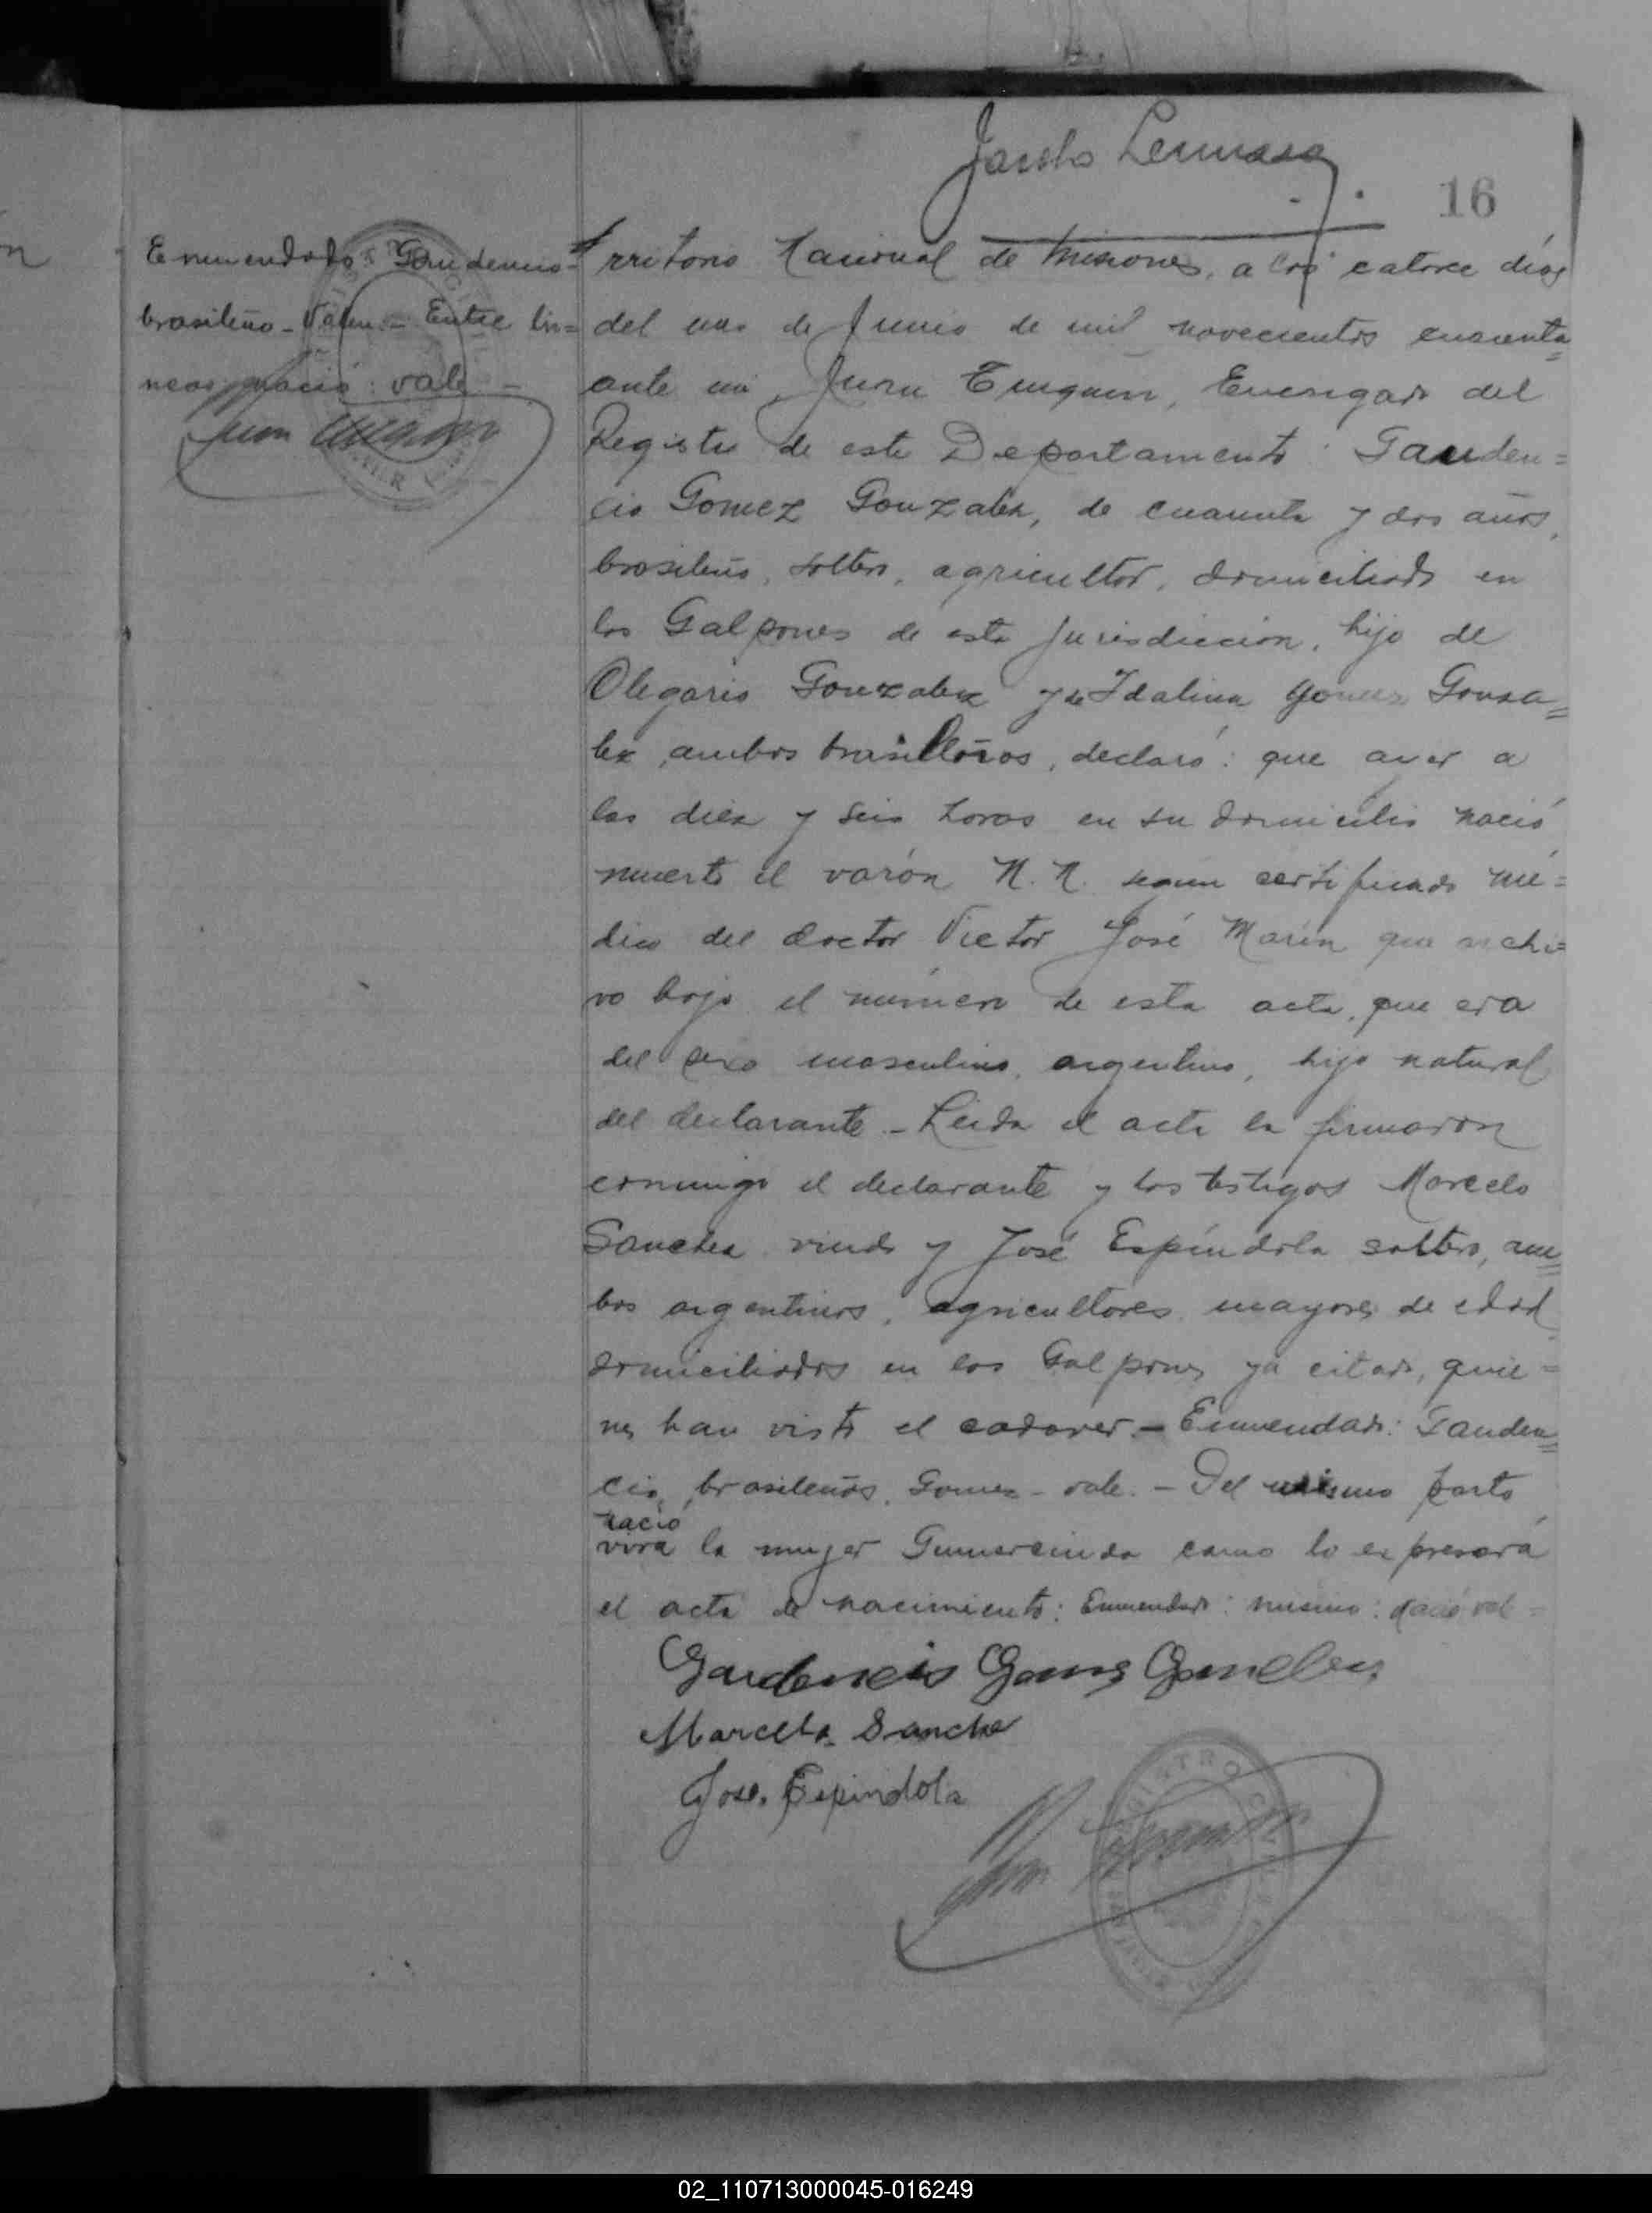 16
Enmendado: Gaudencio=
brasileño - Valen. - Entre lí=
neas nació: vale -
rritorio Nacional de Misiones, a los catorce días
del mes de Junio de mil novecientos cuarenta=
ante mi, Juan Encargado del
Registro de este Departamento: Gauden=
cio Gomez Gonzalez, de cuarenta y dos años,
brasileño, soltero, agricultor, domiciliado en
los Galpones de esta Jurisdicción, hijo de
Olegario Gonzalez y de Idalina Gomez Gonza=
lez, ambos brasileños, declaró: que ayer a
las diez y seis horas en su domicilio nació
muerto el varón N. N. segun certificado mé=
dico del doctor Victor José Marín que archi=
vo bajo el número de esta acta, que era
del sexo masculino, argentino, hijo natural
del declarante - Leida el acta la firmaron
conmigo el declarante y los testigos Marcelo
Sanchez viudo y José Espíndola soltero, am=
bos argentinos, agricultores, mayores de edad,
domiciliados en los Galpones ya citado, quie=
nes han visto el cadaver. - Enmendado: Gauden=
cio, brasileños, Gomez - vale. - Del mismo parto
nació
viva la mujer Gumercinda como lo expresará
el acta de nacimiento: Enmendado: mismo: nació vale=
Gaudencio Gomes
Marcelo Sanche
Jose Espindola
02_110713000045-016249